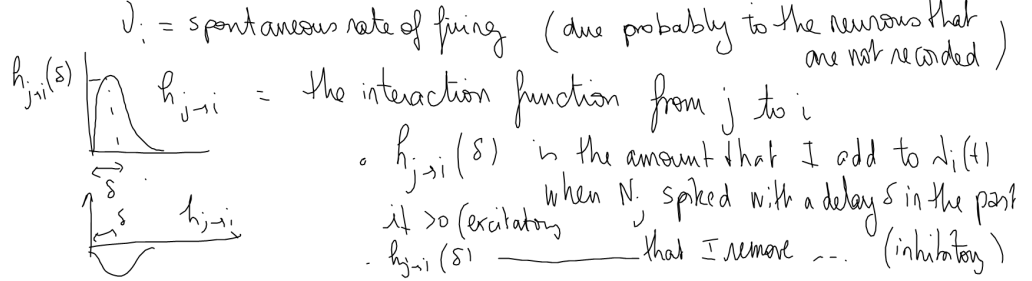 ν_i = spontaneous rate of firing (due probably to the neurons that
are not recorded)
h_{j→i}(δ)
h_{j→i} = the interaction function from j to i
• h_{j→i}(δ) is the amount that I add to λ_i(t)
δ
when N_j spiked with a delay δ in the past
δ h_{j→i}
if >0 (excitatory
• h_{j→i}(δ) ________ that I remove ... (inhibitory)